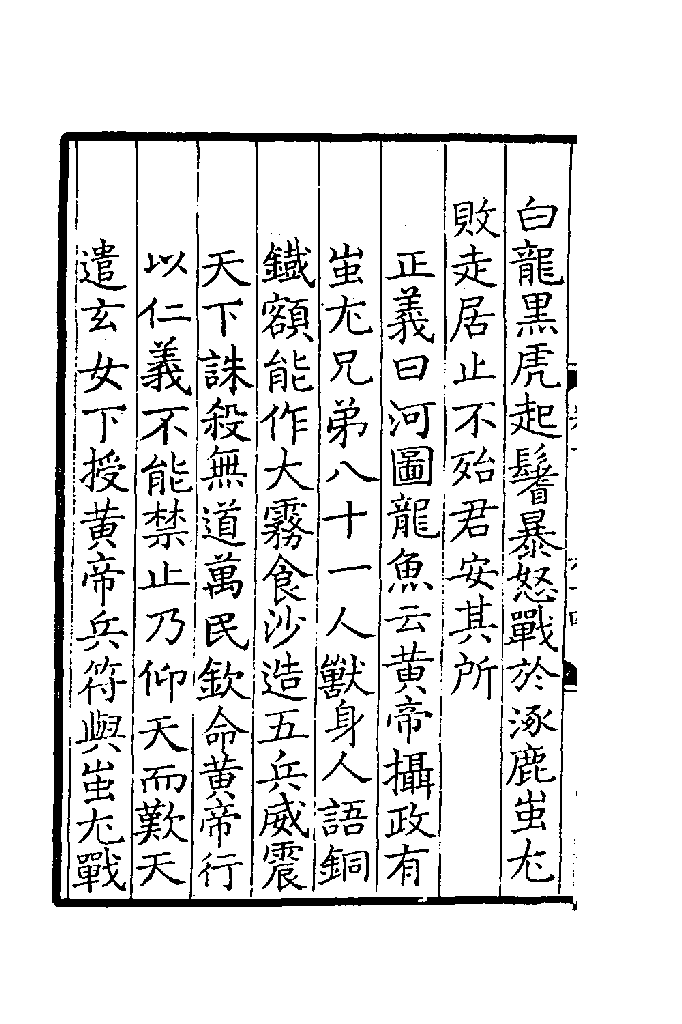 白龍黒虎起鬐暴怒戰於涿鹿蚩尤
敗走居止不殆君安其所
正義曰河圖龍魚云黄帝攝政有
蚩尤兄弟八十一人獸身人語銅
鐵額能作大霧食沙造五兵威震
天下誅殺無道萬民欽命黄帝行
以仁義不能禁止乃仰天而歎天
遣玄女下授黄帝兵符與蚩尤戰